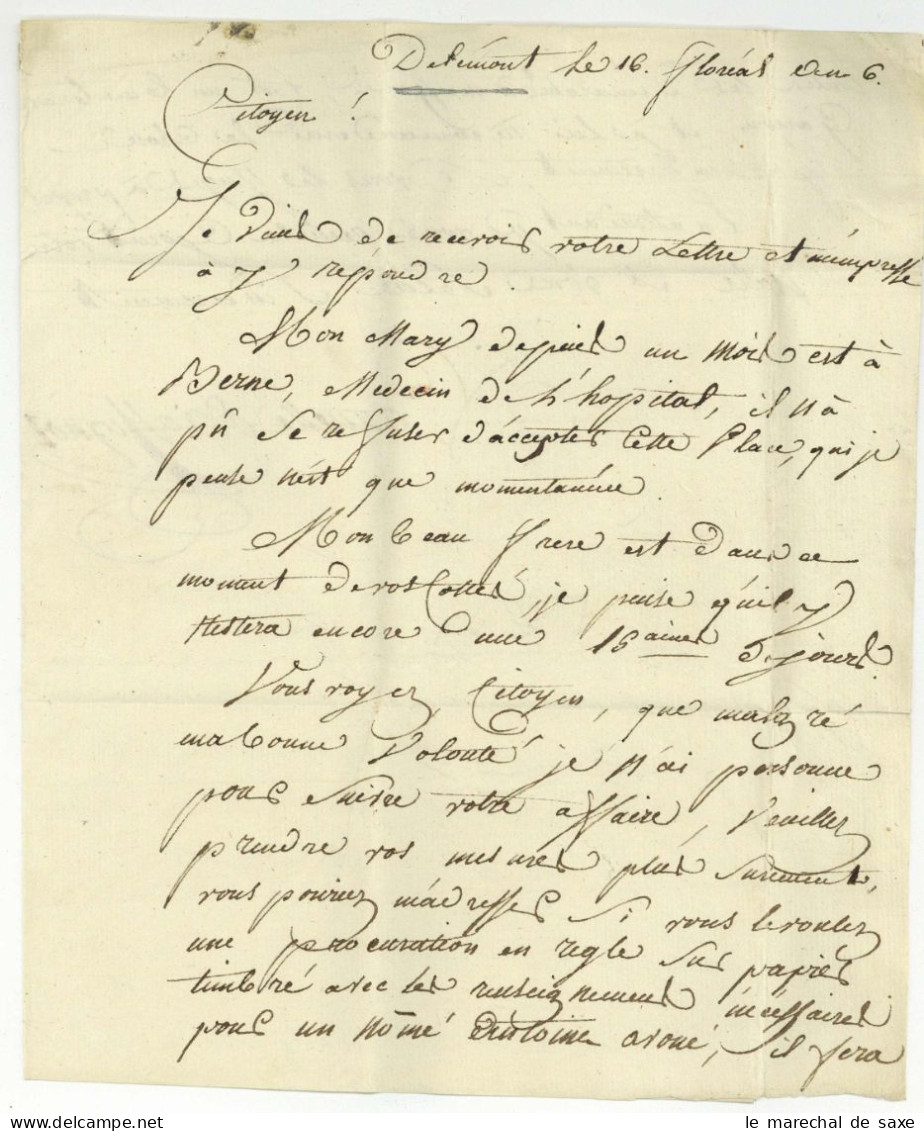 Delémont le 16. floréal an 6.
Citoyen !
Je viens de recevoir votre Lettre et m'empresse
à y répondre.
Mon Mary depuis un mois est à
Berne, Medecin de l'hopital, il n'à
pû se refuser d'accepter cette place, qui je
pense n'est que momentanée.
Mon beau frere est dans ce
moment de vos Cottés, je pense qu'il y
restera encore une 15aine de jours.
Vous voyez, Citoyen, que malgré
ma bonne volonté je n'ai personne
pour suivre votre affaire, veuillez
prendre vos mesures plus surement,
vous pouriez m'adresser si vous le voulez
une procuration en regle sur papier
timbré avec les renseignements nécéssaires
pour un nômé Antoine avoué, il fera
le marechal de saxe